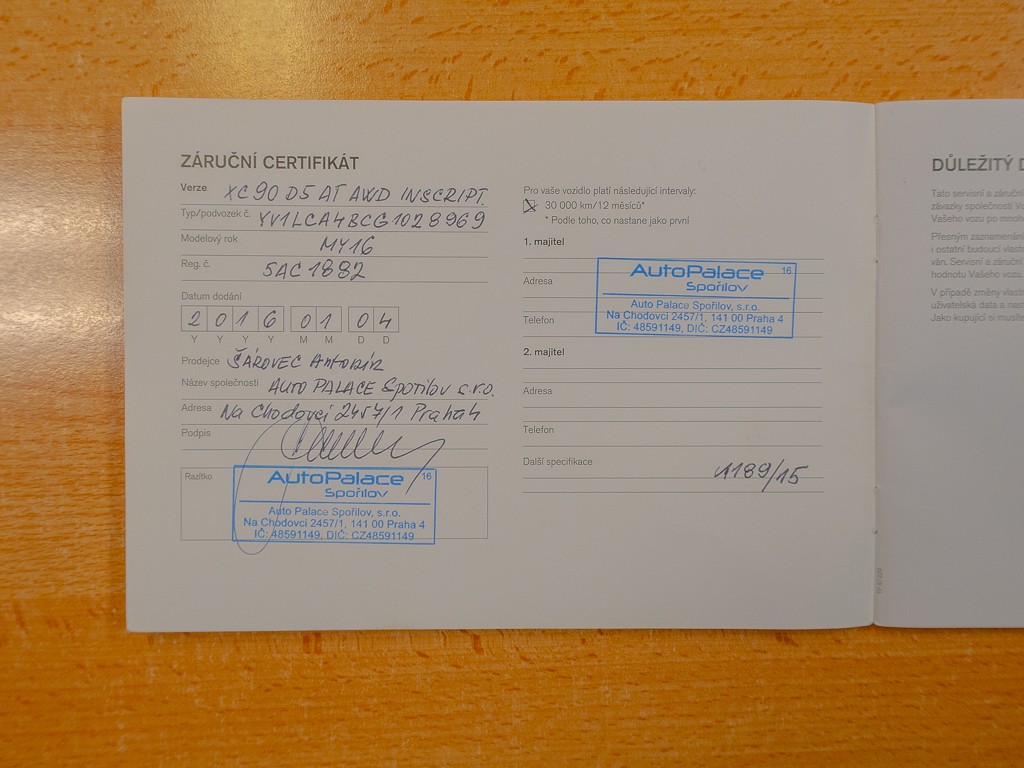 ZÁRUČNÍ CERTIFIKÁT
Verze XC90 D5 AT AWD INSCRIPT.
Typ/podvozek č. YV1LCA4BCG1028969
Modelový rok MY16
Reg. č. 5AC1882
Datum dodání
2 0 1 6 0 1 0 4
Y Y Y Y M M D D
Prodejce ŠÁROVEC Antonín
Název společnosti AUTO PALACE Spořilov s.r.o.
Adresa Na Chodovci 2457/1 Praha 4
Podpis
Razítko
AutoPalace 16
Spořilov
Auto Palace Spořilov, s.r.o.
Na Chodovci 2457/1, 141 00 Praha 4
IČ: 48591149, DIČ: CZ48591149
Pro vaše vozidlo platí následující intervaly:
30 000 km/12 měsíců*
* Podle toho, co nastane jako první
1. majitel
Adresa
Telefon
AutoPalace 16
Spořilov
Auto Palace Spořilov, s.r.o.
Na Chodovci 2457/1, 141 00 Praha 4
IČ: 48591149, DIČ: CZ48591149
2. majitel
Adresa
Telefon
Další specifikace 1189/15
DŮLEŽITÝ
Tato servisní a záruční
závazky společnosti
Vašeho vozu po
Přesným zaznamenání
i ostatní budoucí
ván. Servisní a záruční
hodnotu Vašeho vozu.
V případě změny
uživatelská data a
Jako kupující si